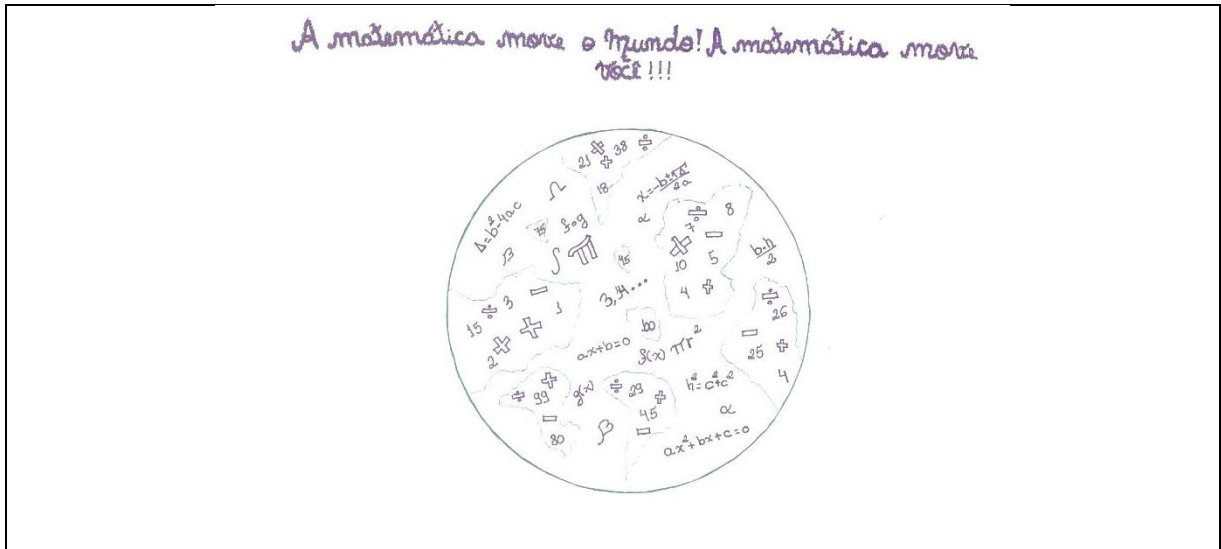 A matemática move o mundo! A matemática move
você!!!
21 × 38 ÷
+
18
Ω
x=-b±√Δ/2a
Δ=b²-4ac
75
fog
α
÷ 8
7 −
×
10 5
4 +
β
∫ π
45
b.h/2
3,14...
15 ÷ 3 −
1
2 × +
÷
26
−
25 +
4
60
ax+b=0
f(x) πr²
+
÷ 99
−
80
g(x)
÷ 29
+
45
−
h²=c²+c²
α
β
ax²+bx+c=0